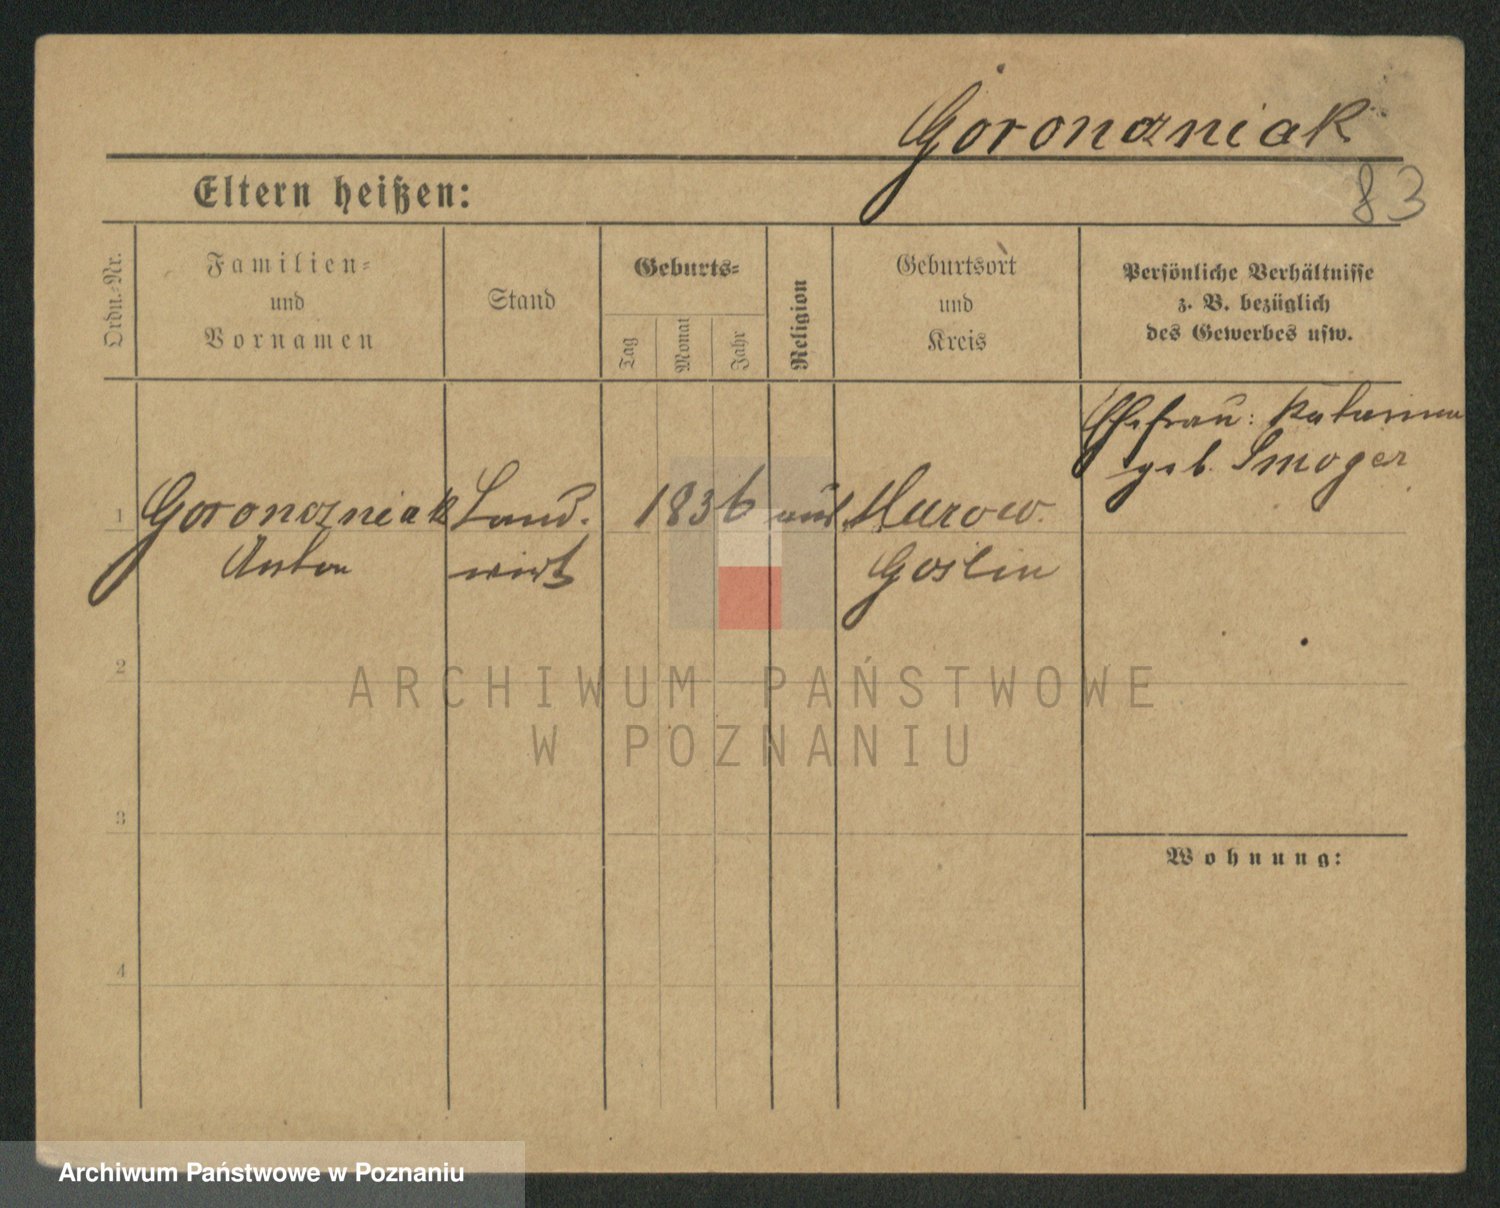 Goronczniak
83
Eltern heißen:
Ordn.-Nr.
Familien-
und
Vornamen
Stand
Geburts-
Tag
Monat
Jahr
Religion
Geburtsort
und
Kreis
Persönliche Verhältnisse
z. B. bezüglich
des Gewerbes usw.
Ehefrau: Katarina
geb. Smoger
1
Goronczniak
Land-
1836
Murow.
Anton
wirt
Goslin
2
3
4
Wohnung:
ARCHIWUM PAŃSTWOWE
W POZNANIU
Archiwum Państwowe w Poznaniu